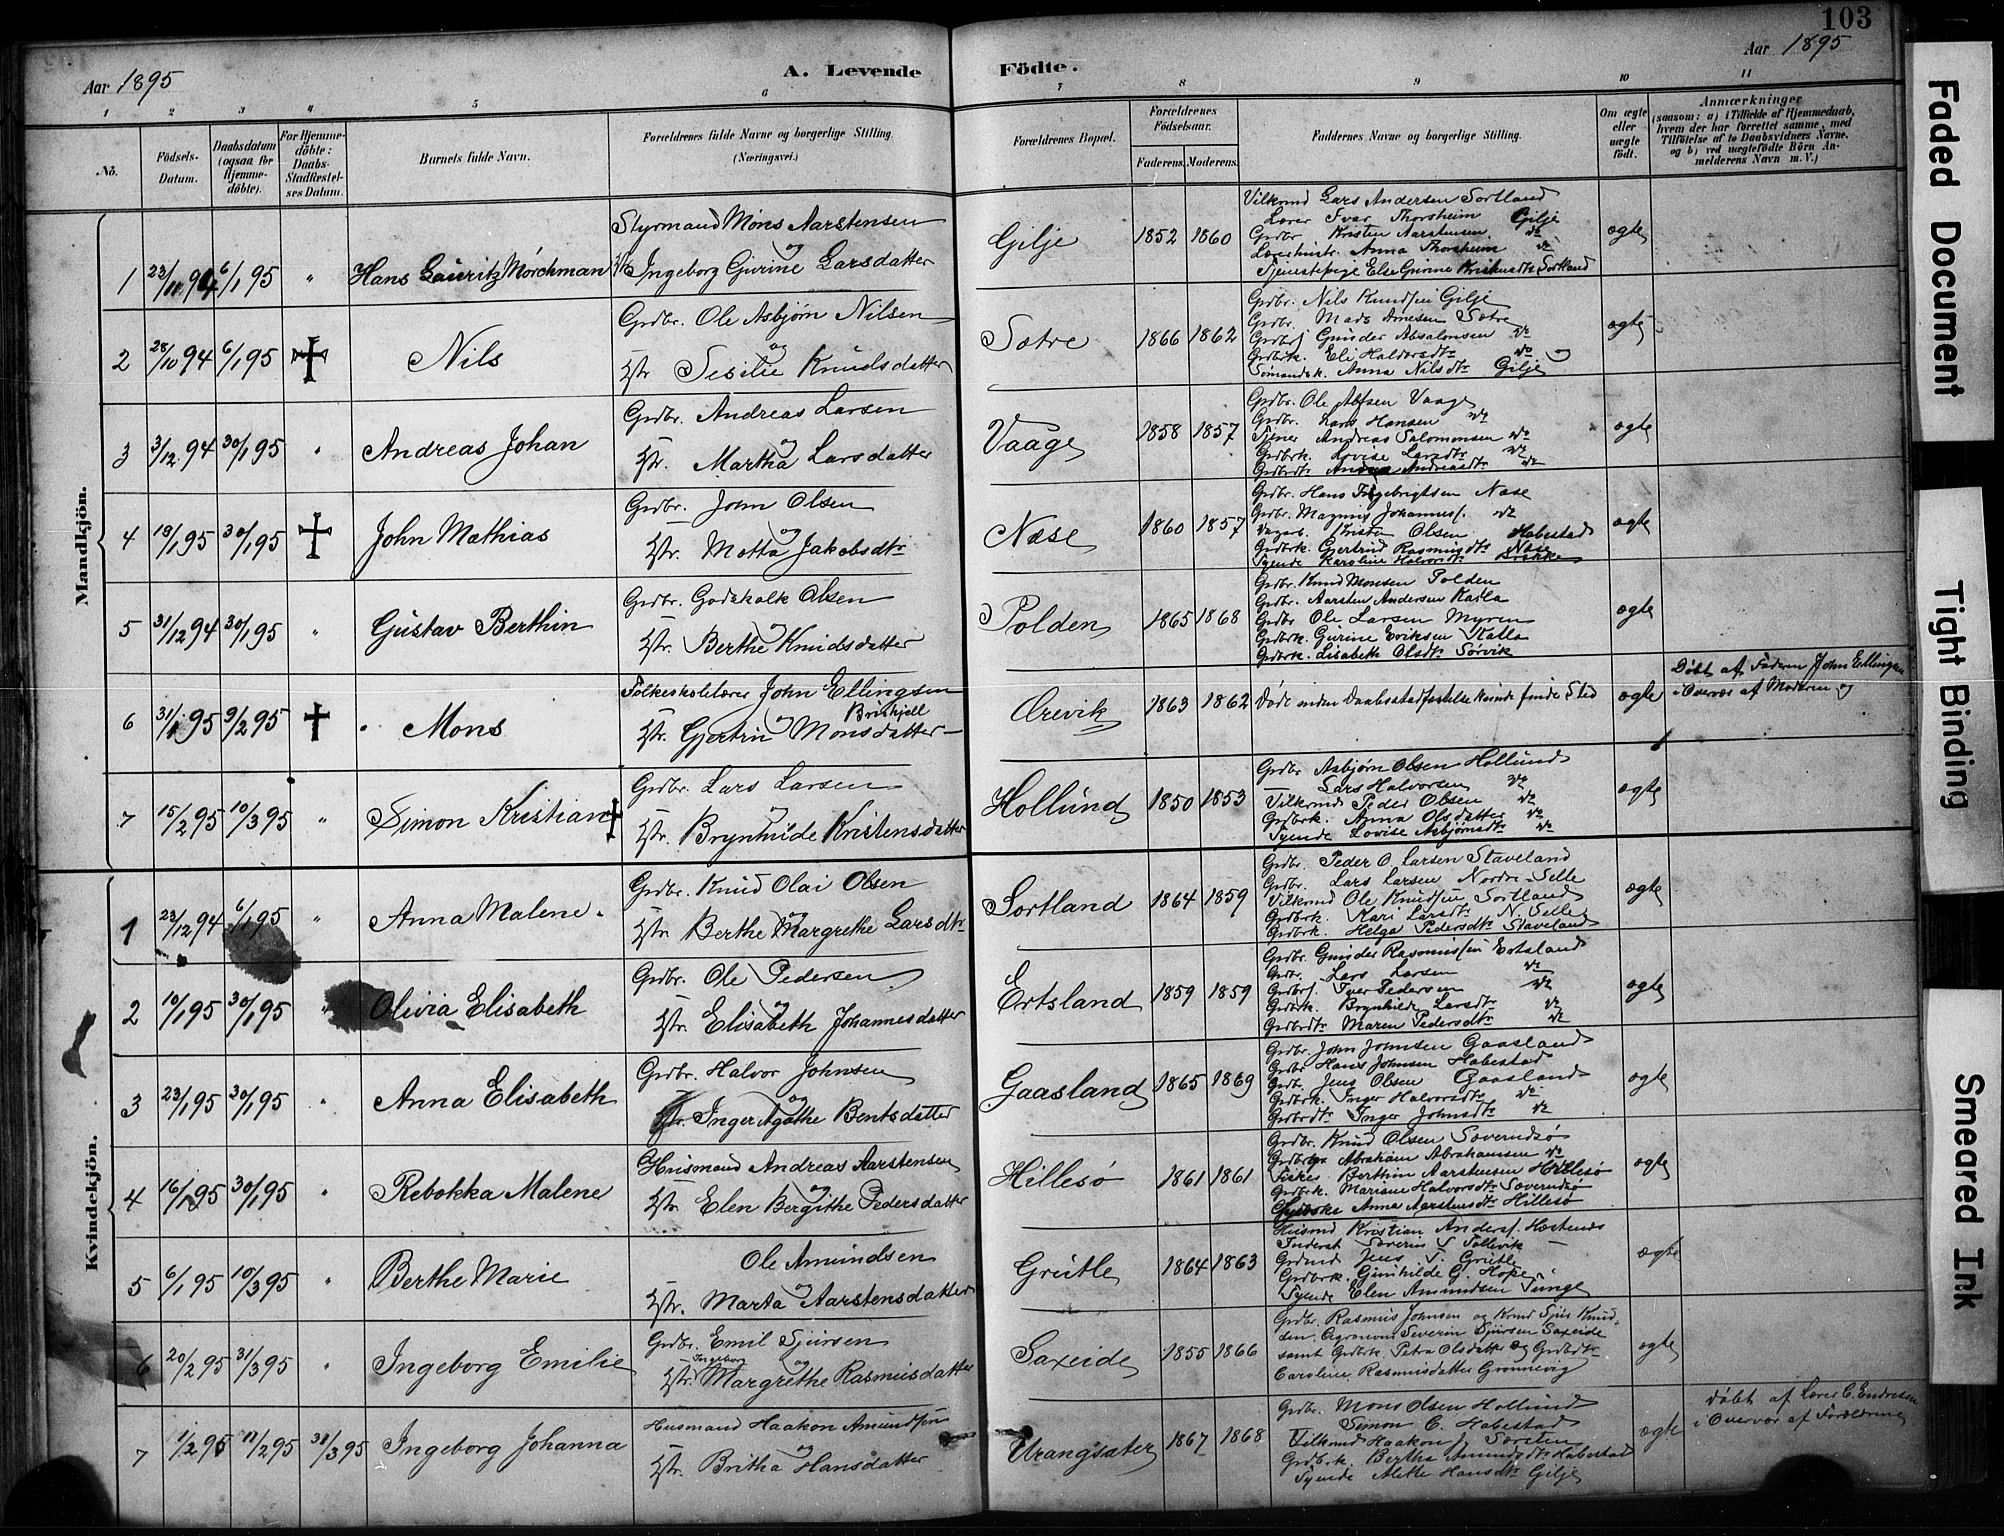 103
Aar 1895
A. Levende Födte.
Aar 1895
1 2 3 4 5 6 7 8 9 10 11
No.
Födsels-Datum.
Daabsdatum (ogsaa for Hjemme-döbte).
For Hjemme-döbte: Daabs-Stadfæstel-ses Datum.
Barnets fulde Navn.
Forældrenes fulde Navne og borgerlige Stilling. (Næringsvei.)
Forældrenes Bopæl.
Forældrenes Födselsaar.
Faderens. Moderens.
Faddernes Navne og borgerlige Stilling.
Om ægte eller uægte födt.
Anmærkninger
(saasom: a) i Tilfælde af Hjemmedaab,
hvem der har forrettet samme, med
Tilföielse af to Daabsvidners Navne.
og b) ved uægtefödte Börn An-
melderens Navn m. V.)
Mandkjön.
1 23/11 94 6/1 95 " Hans Lauritz Mørchman
Styrmand Mons Aarstensen
og
Ingeborg Gurine Larsdatter
Gilje 1852 1860
Vilkmnd Lars Andersen Sortland
Lærer Ivar Thorsheim Gilje
Grdbr Kristen Aarstensen do
Lærerhustr. Anna Thorsheim do
Tjenestepige Else Gurine Sortland
ægte
2 28/10 94 6/1 95 Nils
Grdbr. Ole Asbjørn Nilsen
og
Hstr Sesilie Knudsdatter
Sætre 1866 1862
Grdbr. Nils Knudsen Gilje
Grdbr. Mads Arnesen Sætre
Gunder Absalonsen do
Grdbrk. Eli Haldorsdtr do
Sømandsk. Anna Nilsdtr Gilje
ægte
3 3/12 94 30/1 95 " Andreas Johan
Grdbr. Andreas Larsen
og
Hstr. Martha Larsdatter
Vaage 1858 1857
Grdbr. Ole Vaage
Grdbr. Lars Hansen do
Tjener Andreas Salomonsen do
Grdbrk. Lovise Larsdtr do
Grdbrdtr Andreasdtr do
ægte
4 18/1 95 30/1 95 John Mathias
Grdbr. John Olsen
og
Hstr. Metta Jakobsdtr
Næse 1860 1857
Grdbr. Hans Ingebrigtsen Næse
Grdbr. Magnus Johannesf. do
Kristen Olsen Habestad
Grdbrk. Gjertrud Rasmusdtr Næse
Tyende Karoline Halvorsdtr
ægte
5 31/12 94 30/1 95 " Gustav Berthin
Grdbr. Godskalk Olsen
og
Hstr. Berthe Knudsdatter
Polden 1865 1868
Grdbr. Knud Monsen Polden
Grdbr. Aarsten Andersen Kalla
Grdbr Ole Larsen Myren
Grdbrk. Gurine Eriksen Kalla
Grdbrk. Lisabeth Olsdtr Sørvik
ægte
6 31/1 95 9/2 95 Mons
Folkeskolelærer John Ellingsen
Briskjell
Hstr. Gjertru Monsdatter
Ørevik 1863 1862
Døde inden Daabsstadfæstelse kunde finde Sted
ægte
Døbt af Faderen John Ellingsen
i Overvær af Moderen og
7 15/2 95 10/3 95 " Simon Kristian
Grdbr. Lars Larsen
og
Hstr. Brynhilde Kristensdatter
Hollund 1850 1853
Grdbr Asbjørn Olsen Hollund
Lars Halvorsen do
Vilkmnd Peder Olsen do
Grdbrk. Anna Olsdatter do
Tyende Lovise Asbjørnsdtr do
ægte
Kvindekjön.
1 23/12 94 6/1 95 " Anna Malene
Grdbr. Knud Olai Olsen
og
Hstr. Berthe Margrethe Larsdtr
Sortland 1864 1859
Grdbr. Peder O. Larsen Staveland
Grdbr. Lars Larsen Nordre-Selle
Vilkmnd Ole Knudsen Sortland
Grdbrk. Kari Larsdtr N. Selle
Grdbrk. Helga Pedersdtr Staveland
ægte
2 10/1 95 30/1 95 " Olivia Elisabeth
Grdbr. Ole Pedersen
og
Hstr. Elisabeth Johannesdatter
Ertsland 1859 1859
Grdbr. Gunder Rasmussen Ertsland
Grdbr. Lars Larsen do
Iver Pedersen do
Grdbrk. Brynhilde Larsdtr do
Grdbrdtr Maren Pedersdtr do
ægte
3 23/1 95 30/1 95 " Anna Elisabeth
Grdbr. Halvor Johnsen
og
Hstr. Inger Agathe Bentsdatter
Gaasland 1865 1869
Grdbr. John Johnsen Gaasland
Grdbr Hans Johnsen Habestad
Grdb. Jens Olsen Gaasland
Grdbrk. Inger Halvorsdtr do
Grdbrdtr Inger Johnsdtr do
ægte
4 16/1 95 30/1 95 " Rebekka Malene
Husmand Andreas Aarstensen
og
Hstr. Elen Bergithe Pedersdatter
Hillesø 1861 1861
Grdbr. Knud Olsen
Abraham Abrahamsen do
Fisker Berthin Aarstensen Hillesø
Grdbrk. Mariane Halvorsdtr
Anna Aarstensdtr Hillesø
ægte
5 6/1 95 10/3 95 " Berthe Marie
Ole Amundsen
og
Hstr. Marta Aarstensdatter
Grutle 1864 1863
Husmd Kristian Andersf. Hæstenes
Inderst Severin S Tollevik
Jens T. Grutle
Grdbrk. Gunhilde G. Hope
Tyende Elen Amundsen Tunge
ægte
6 20/2 95 31/3 95 " Ingeborg Emilie
Grdbr. Emil Sjursen
Ingeborg og
Hstr. Margrethe Rasmusdatter
Saxeide 1855 1866
Grdbr. Rasmus Johnsen og Knud Sjur Knud-
sen, Agronom Severin Sjursen Saxeide
samt Grdbrk. Petra Olsdatter og Grdbrdtr
Caroline Rasmusdatter Grønnevig
ægte
7 1/2 95 11/2 95 31/3 95 Ingeborg Johanna
Husmand Haakon Amundsen
og
Hstr. Britha Hansdatter
Urangsæter 1867 1868
Grdbr. Mons Olsen Hollund
Simon C. Habestad
Vilkmnd Haakon J. Sørsten
Grdbrk. Bertha Amundsdtr Habestad
Tyende Alette Hansdtr Gilje
ægte
Døbt af Lærer C. Endresen
i Overvær af Forældrene
Faded Document
Tight Binding
Smeared Ink